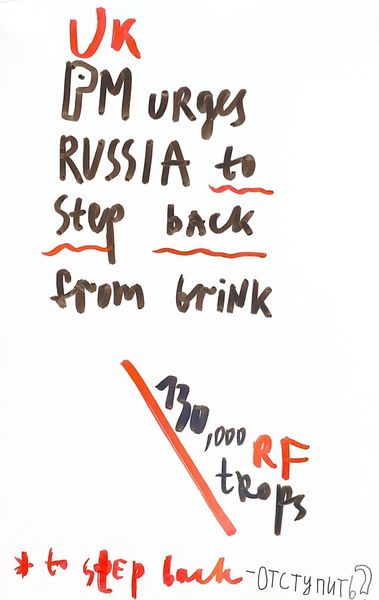 UK
PM urges
RUSSIA to
step back
from brink
130,000 RF
trops
* to step back - отступить